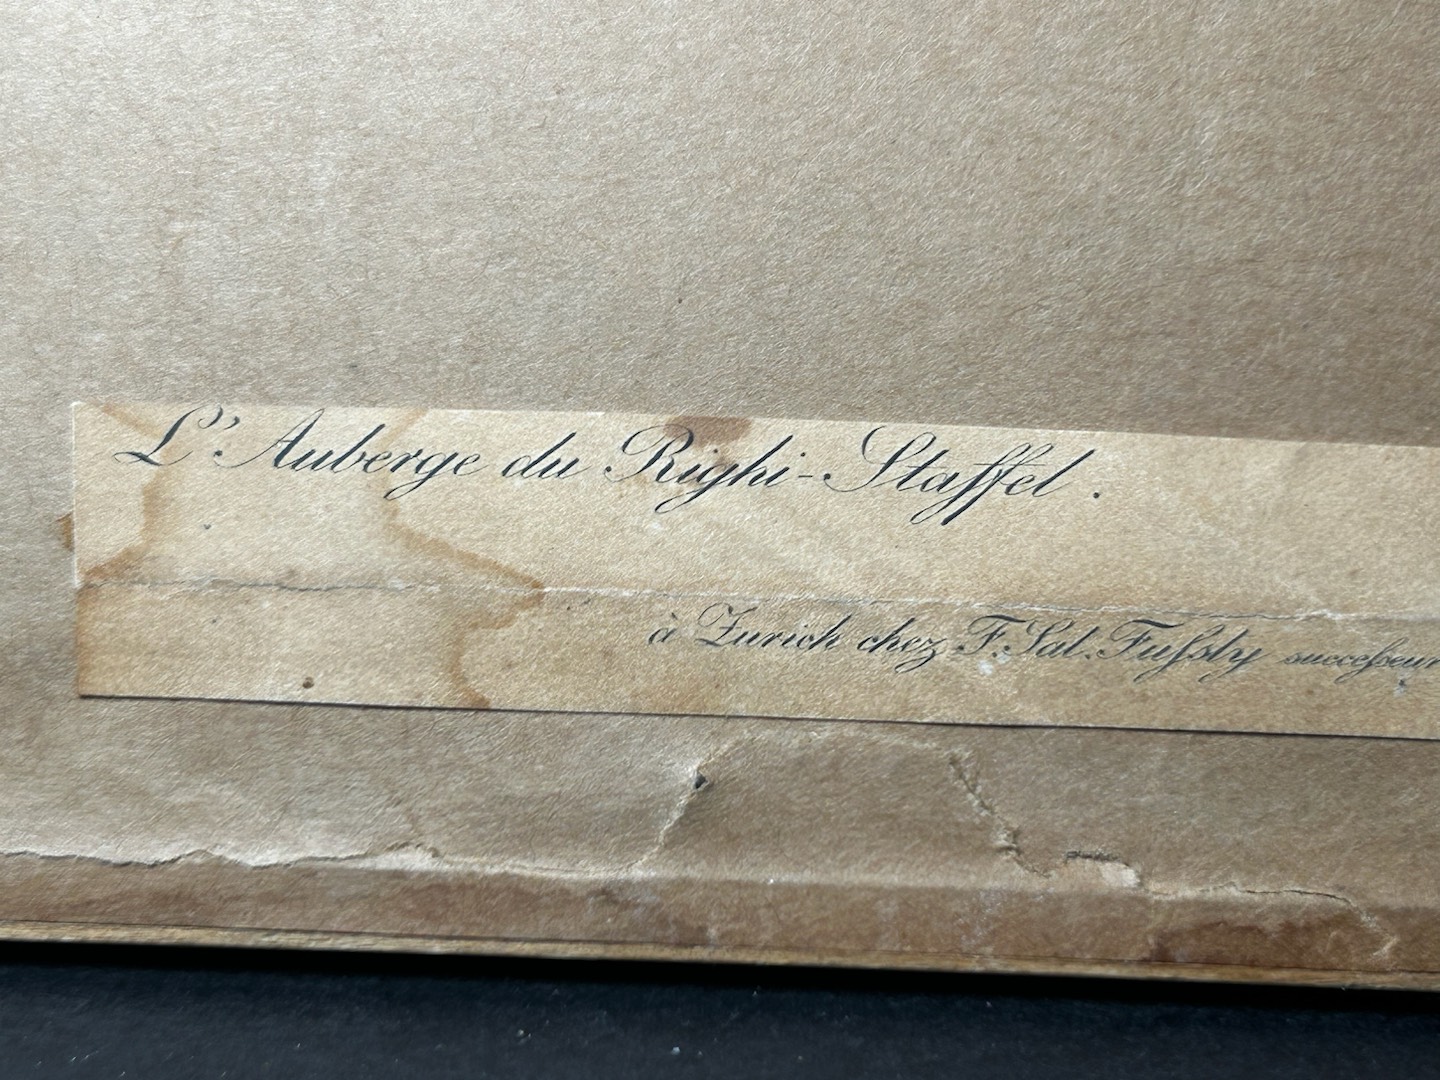 L'Auberge du Righi-Staffel.
à Zurich chez F. Sal. Fuſsly succeſseur